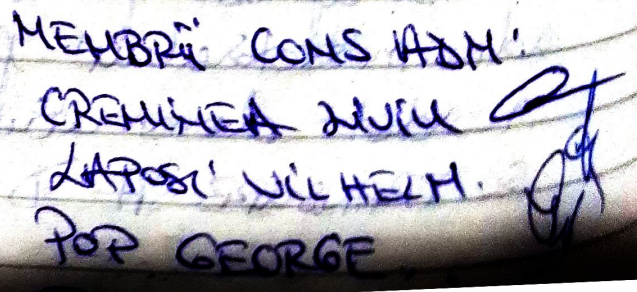 MEMBRII CONS ADM.
CREMENEA LIVIU
LAPOSI VILHELM.
POP GEORGE